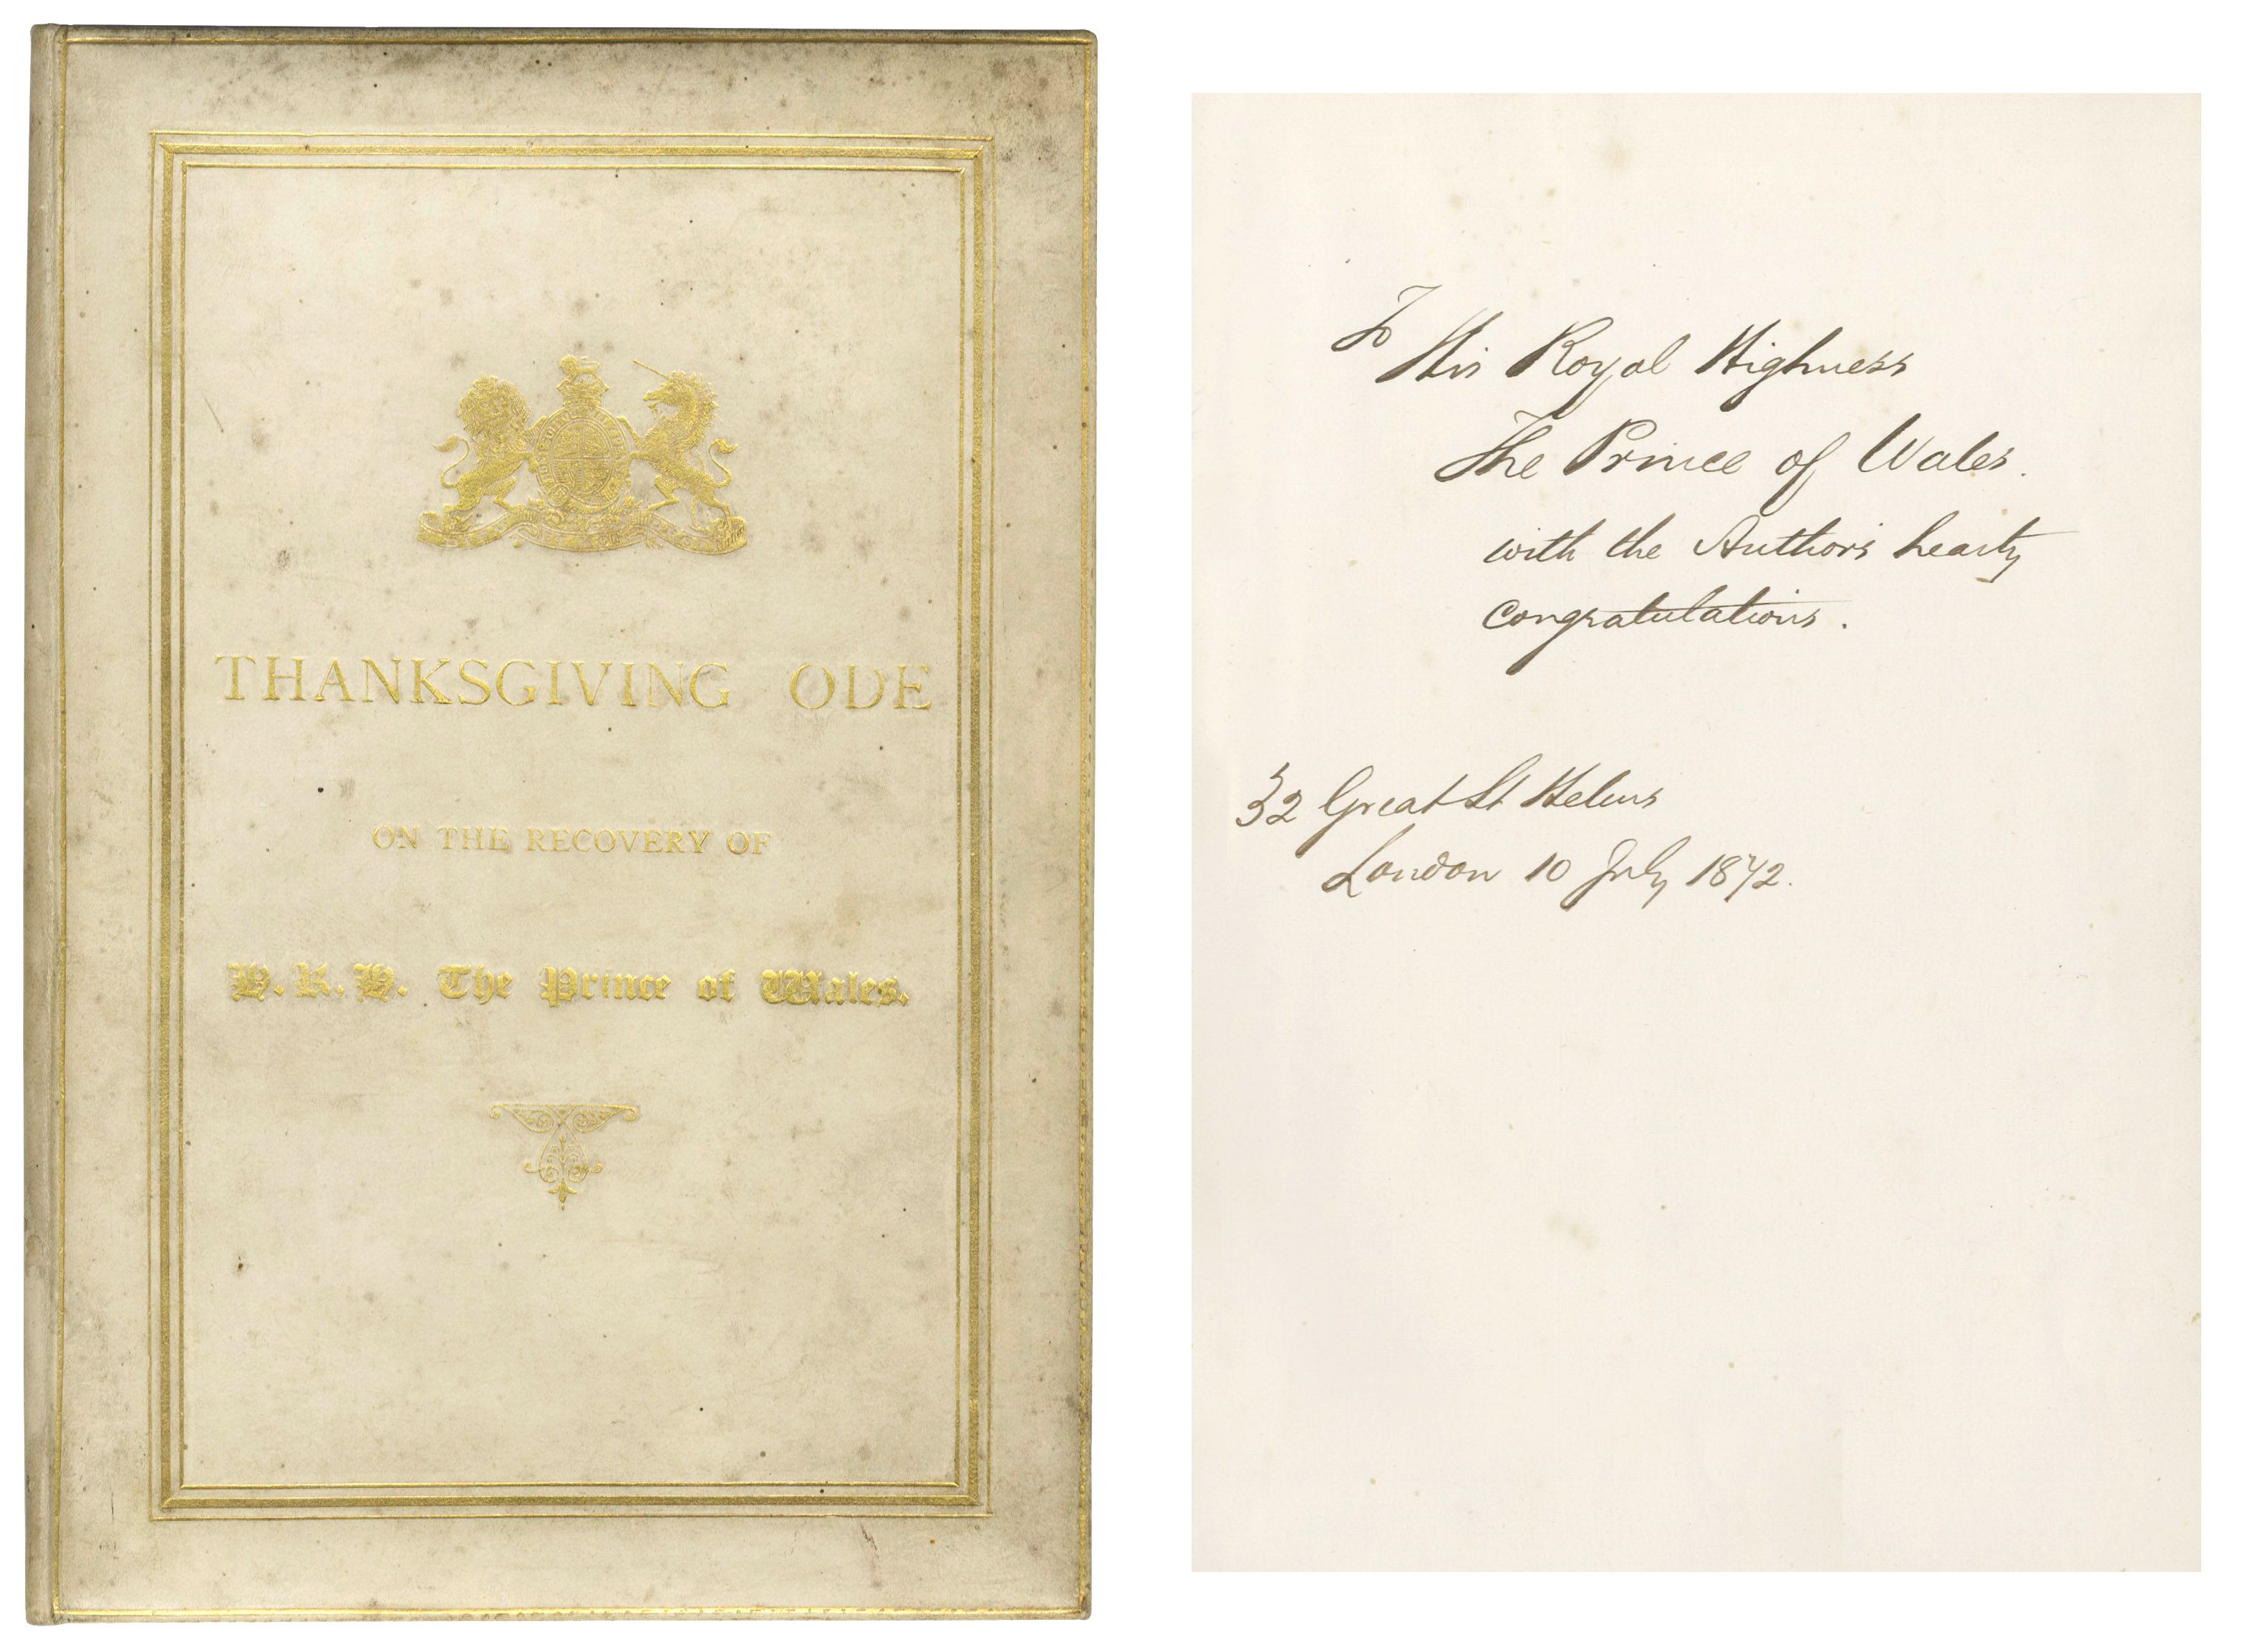 THANKSGIVING ODE
ON THE RECOVERY OF
H.R.H. The Prince of Wales.
To
His Royal Highness
The Prince of Wales.
with the Author's hearty
congratulations.
32 Great St Helens
London 10 July 1872.